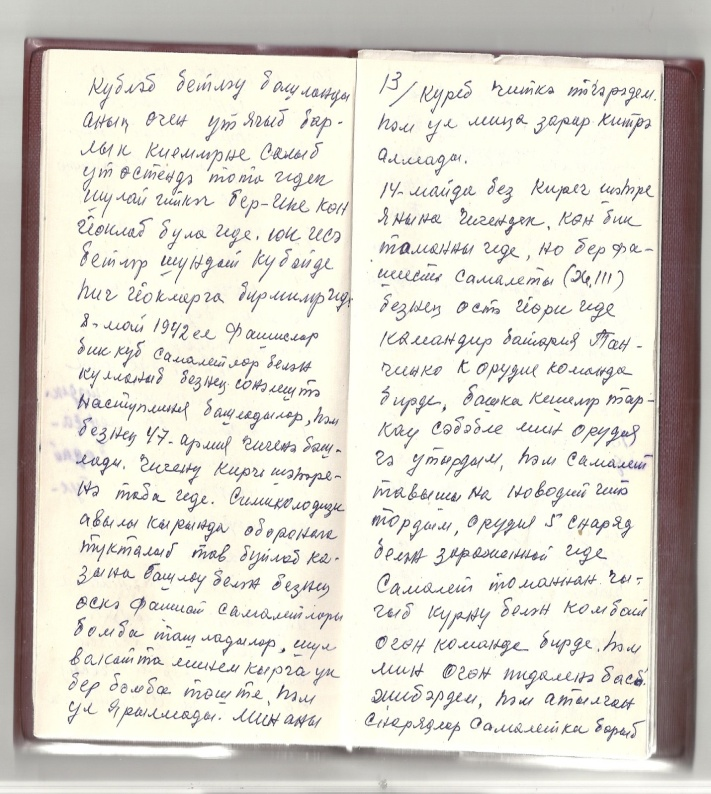 кублэб бетлэу башланды
аның очен ут ягыб бар-
лык киемнрне салыб
ут остендэ тота идек
шулай итик бер-ике кон
йоклаб була иде. юк исэ
бетлэр шундай кубэйде
һич йокларга бирмилр иде
8-май 1942 ел фашислар
бик куб самалетлар белэн
кулланыб безнең
наступления башладылар, һэм
безнең 47-армия чигенэ баш-
лады. Чигену Кирч шэһэре-
нэ таба иде.
авылы кырында оборонага
тукталыб тав буйлаб ка-
зына башлау белэн безнең
оскэ фашист самалетлары
бомба ташладылар, шул
вакытта минем кырга ук
бер бомба тоште, һэм
ул ярылмады. Мин аны
13/ куреб читкэ тгэрэдем.
һэм ул миңа зарар китрэ
алмады.
14-майда без Кирег шэһре
янына чигендек, кон бик
таманны иде, но бер фа-
шисты самалеты (Хе,III)
безнең остэ йори иде
камандир батария Пан-
ченко к орудие команда
бирде, башка кешелр тар-
кау сэбэбле мин орудия
гэ утырдым, һэм самалет
тавышына наводит итэ
тордым, орудия 5 снаряд
белэн зараженной иде
Самалет томаннан чы-
гыб курну белэн комбат
огон команде бирде. һэм
мин огон пидаленэ басб.
жибэрдем, һэм атылган
снарядлар самалетка барыб